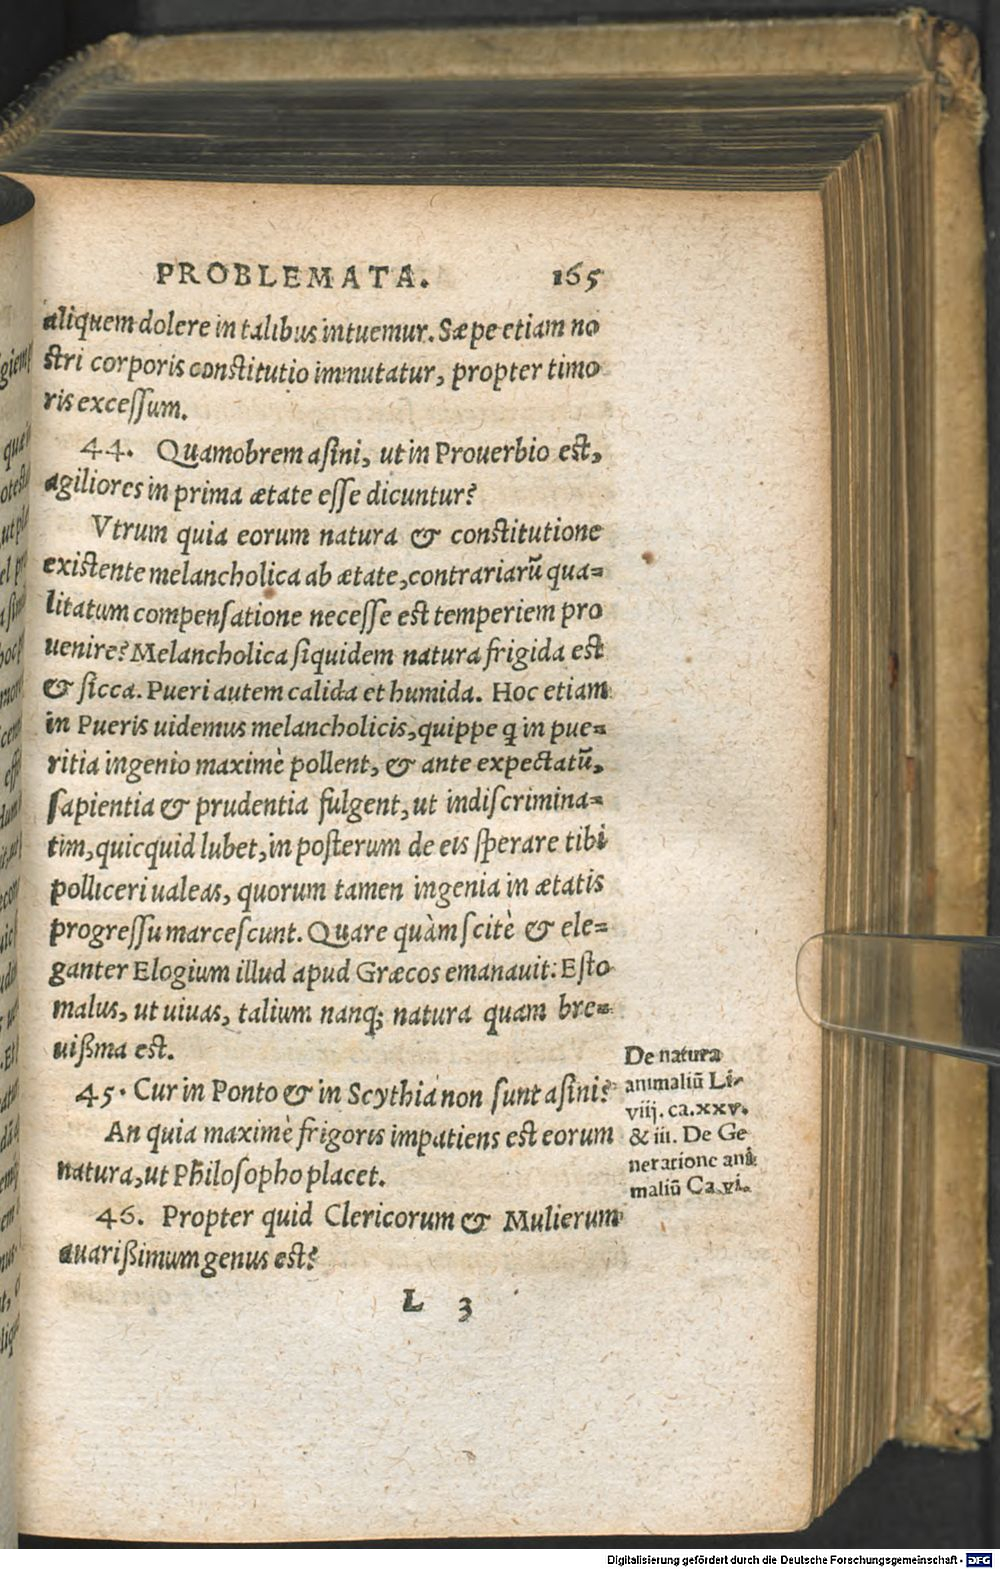 PROBLEMATA. 165
aliquem dolere in talibus intuemur. Sæpe etiam no
stri corporis constitutio immutatur, propter timo
ris excessum.
44. Quamobrem asini, ut in Prouerbio est,
agiliores in prima ætate esse dicuntur?
Vtrum quia eorum natura & constitutione
existente melancholica ab ætate, contrariarũ qua=
litatum compensatione necesse est temperiem pro
uenire? Melancholica siquidem natura frigida est
& sicca. Pueri autem calida et humida. Hoc etiam
in Pueris uidemus melancholicis, quippe q̃ in pue=
ritia ingenio maximè pollent, & ante expectatũ,
sapientia & prudentia fulgent, ut indiscrimina=
tim, quicquid lubet, in posterum de eis sperare tibi
polliceri ualeas, quorum tamen ingenia in ætatis
progressu marcescunt. Quare quàm scitè & ele=
ganter Elogium illud apud Græcos emanauit: Esto
malus, ut uiuas, talium nanq; natura quam bre=
uißma est.
45. Cur in Ponto & in Scythia non sunt asini?
An quia maximè frigoris impatiens est eorum
natura, ut Philosopho placet.
De natura
animaliũ Li-
viij. ca. xxv.
& iii. De Ge
neratione ani
maliũ Ca. vi.
46. Propter quid Clericorum & Mulierum
auarißimum genus est?
L 3
Digitalisierung gefördert durch die Deutsche Forschungsgemeinschaft - DFG